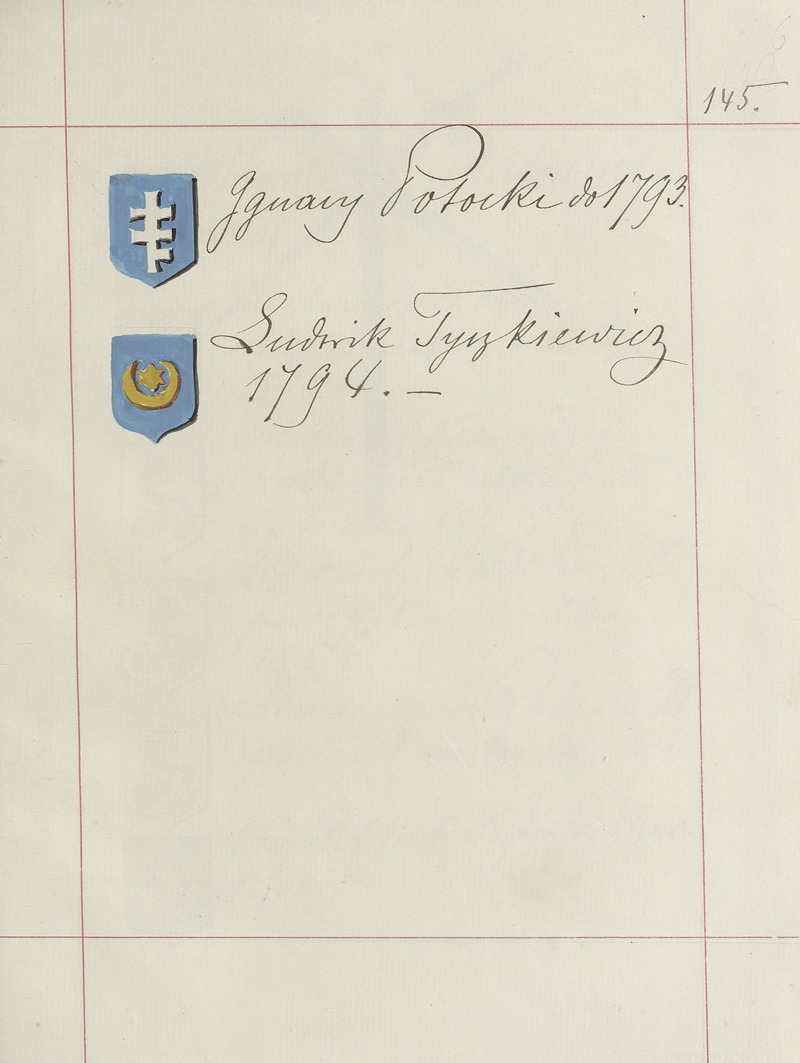 145.
Ignacy Potocki do 1793.
Ludwik Tyszkiewicz
1794. —